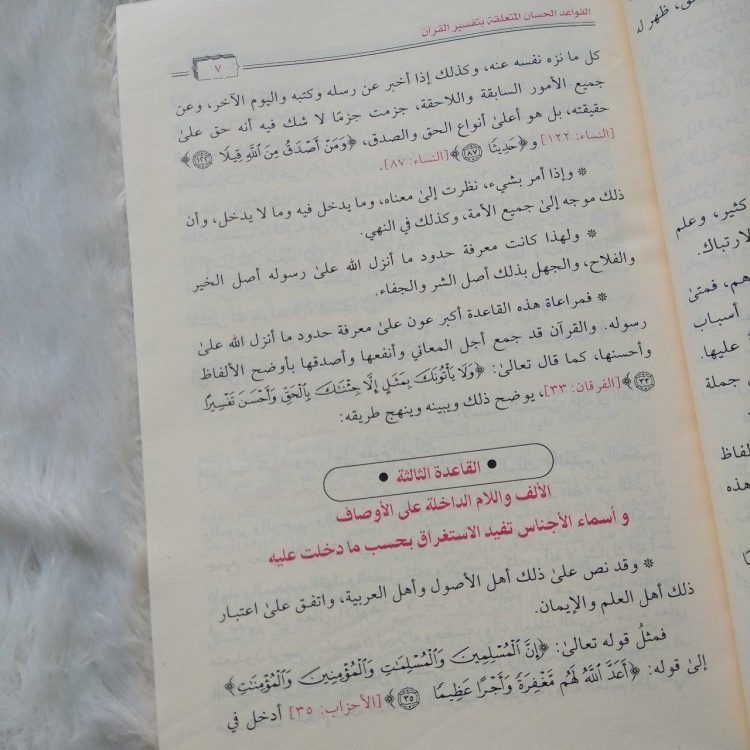 القواعد الحسان المتعلقة بتفسير القرآن
٧
كل ما نزه نفسه عنه، وكذلك إذا أخبر عن رسله وكتبه واليوم الآخر، وعن
جميع الأمور السابقة واللاحقة، جزمت جزمًا لا شك فيه أنه حق علىٰ
حقيقته، بل هو أعلىٰ أنواع الحق والصدق، ﴿وَمَنْ أَصْدَقُ مِنَ ٱللَّهِ قِيلًا ﴿١٢٢﴾﴾
[النساء: ١٢٢] و﴿حَدِيثًا ﴿٨٧﴾﴾ [النساء: ٨٧].
* وإذا أمر بشيء، نظرت إلىٰ معناه، وما يدخل فيه وما لا يدخل، وأن
ذلك موجه إلىٰ جميع الأمة، وكذلك في النهي.
* ولهذا كانت معرفة حدود ما أنزل الله علىٰ رسوله أصل الخير
والفلاح، والجهل بذلك أصل الشر والجفاء.
* فمراعاة هذه القاعدة أكبر عون علىٰ معرفة حدود ما أنزل الله علىٰ
رسوله. والقرآن قد جمع أجل المعاني وأنفعها وأصدقها بأوضح الألفاظ
وأحسنها، كما قال تعالىٰ: ﴿وَلَا يَأْتُونَكَ بِمَثَلٍ إِلَّا جِئْنَـٰكَ بِٱلْحَقِّ وَأَحْسَنَ تَفْسِيرًا
﴿٣٣﴾﴾ [الفرقان: ٣٣]، يوضح ذلك ويبينه وينهج طريقه:
• القاعدة الثالثة •
الألف واللام الداخلة على الأوصاف
و أسماء الأجناس تفيد الاستغراق بحسب ما دخلت عليه
* وقد نص علىٰ ذلك أهل الأصول وأهل العربية، واتفق علىٰ اعتبار
ذلك أهل العلم والإيمان.
فمثلُ قوله تعالىٰ: ﴿إِنَّ ٱلْمُسْلِمِينَ وَٱلْمُسْلِمَـٰتِ وَٱلْمُؤْمِنِينَ وَٱلْمُؤْمِنَـٰتِ﴾
إلىٰ قوله: ﴿أَعَدَّ ٱللَّهُ لَهُم مَّغْفِرَةً وَأَجْرًا عَظِيمًا ﴿٣٥﴾﴾ [الأحزاب: ٣٥] أدخل في
ق، ظهر له
كثير، وعلم
لارتباك.
هم، فمتىٰ
أسباب
عليها.
جملة
لفاظ
هذه